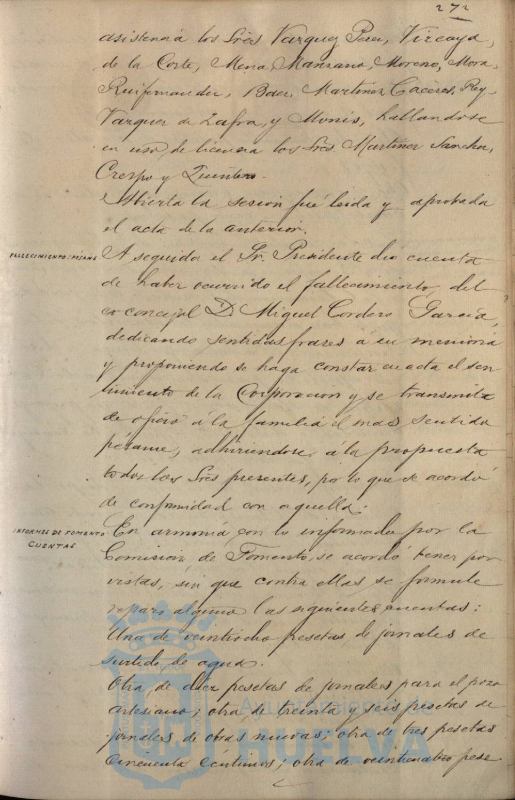 272
asistencia los Sres Vazquez Perez, Vizcaya,
de la Corte, Mena, Manzano, Moreno, Mora,
Ruifernandez, Baez, Martinez Cáceres, Rey
Vazquez de Zafra, y Monis, hallandose
en uso de licencia los Sres Martinez Sanchez,
Crespo y Quintero.
Abierta la sesion fué leida y aprobada
el acta de la anterior.
FALLECIMIENTO: PÉSAME
A seguida el Sr. Presidente dio cuenta
de haber ocurrido el fallecimiento del
exconcejal D. Miguel Cordero García,
dedicando sentidas frases á su memoria
y proponiendo se haga constar en acta el sen
timiento de la Corporacion y se transmita
de oficio á la familia el mas sentido
pésame, adhiriendose á la propuesta
todos los Sres presentes, por lo que se acordó
de conformidad con aquella.
INFORMES DE FOMENTO
CUENTAS
En armonia con lo informado por la
Comision de Fomento, se acordó tener por
vistas, sin que contra ellas se formule
reparo alguno las siguientes cuentas:
Una de veintiocho pesetas de jornales de
surtido de agua.
Otra de diez pesetas de jornales para el pozo
artesiano; otra de treinta y seis pesetas de
jornales de obras nuevas; otra de tres pesetas
cincuenta céntimos; otra de veinticuatro pese
Ayuntamiento de
HUELVA